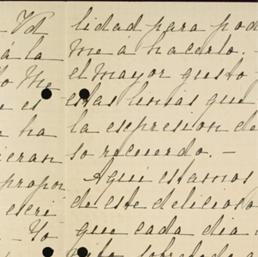 Vd
á la
o me
es
ha
ieran
propon
escri
Yo
lidad para pod
me a hacerlo. -
el mayor gusto
estas lineas que
la espresion de
so recuerdo. -
Aqui estamos
de este delicioso
que cada dia